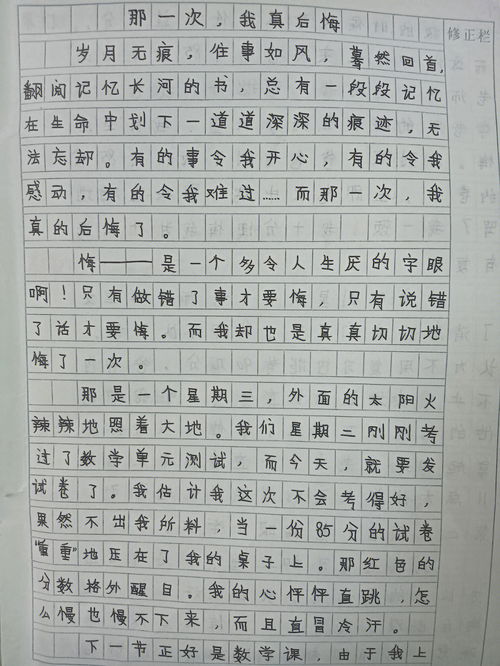 那一次，我真后悔
修正栏
岁月无痕，住事如风，蓦然回首，
翻阅记忆长河的书，总有一段段记忆
在生命中划下一道道深深的痕迹，无
法忘却。有的事令我开心，有的令我
感动，有的令我难过……而那一次，我
真的后悔了。
悔——是一个多令人生厌的字眼
啊！只有做错了事才要悔，只有说错
了话才要悔。而我却也是真真切切地
悔了一次。
那是一个星期三，外面的太阳火
辣辣地照着大地。我们星期二刚刚考
过了数学单元测试，而今天，就要发
试卷了。我估计我这次不会考得好，
果然不出我所料，当一份85分的试卷
"重重"地压在了我的桌子上。那红色的
分数格外醒目。我的心怦怦直跳，怎
么慢也慢不下来，而且直冒冷汗。
下一节正好是数学课，由于我上